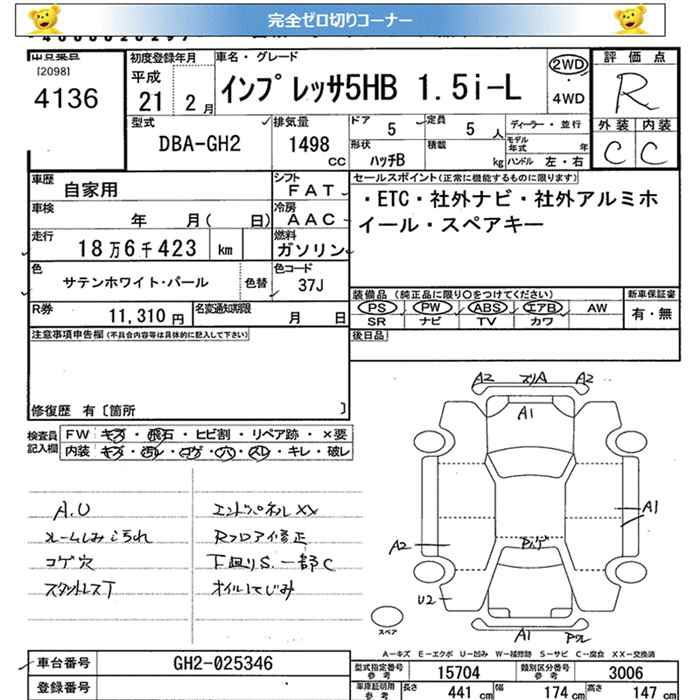 完全ゼロ切りコーナー
中京乗曽
[2098]
4136
初度登録年月
平成
21 2 月
車名・グレード
インプレッサ5HB 1.5i-L
2WD
・
4WD
評 価 点
R
外装 内装
C C
型式
DBA-GH2
排気量
1498
CC
ドア
5
定員
5 人
ディーラー・並行
モデル
年式 年
形状
ハッチB
積載
kg
ハンドル 左・右
車歴
自家用
シフト
FAT
車検
年 月( 日)
冷房
AAC
走行
18万6千423 km
燃料
ガソリン
色
サテンホワイト・パール
色替
色コード
37J
R券
11,310 円
名変通知期限
月 日
セールスポイント(正常に機能するものに限ります)
・ETC・社外ナビ・社外アルミホ
イール・スペアキー
装備品 (純正品に限り○をつけてください)
新車保証書
PS PW ABS エアB AW
有・無
SR ナビ TV カワ
後日品
注意事項申告欄(不具合内容等は具体的に記入して下さい)
修復歴 有〔箇所 〕
検査員
記入欄
FW キズ・飛石・ヒビ割・リペア跡・×要
内装 キズ・汚レ・コゲ・穴・スレ・キレ・破レ
A.U
ルームしみ汚れ
コゲ穴
スタットレスT
エントパネルXX
Rフロアイ修正
下廻りS.一部C
オイルにじみ
A2 スリA A2
A1
A1
A2
U2
スペア
A1
A-キズ E-エクボ U-凹み W-補修跡 S-サビ C-腐食 XX-交換済
車台番号
GH2-025346
登録番号
型式指定番号
参考
15704
類別区分番号
参考
3006
車庫証明用
参考
長さ
441 cm
幅
174 cm
高さ
147 cm